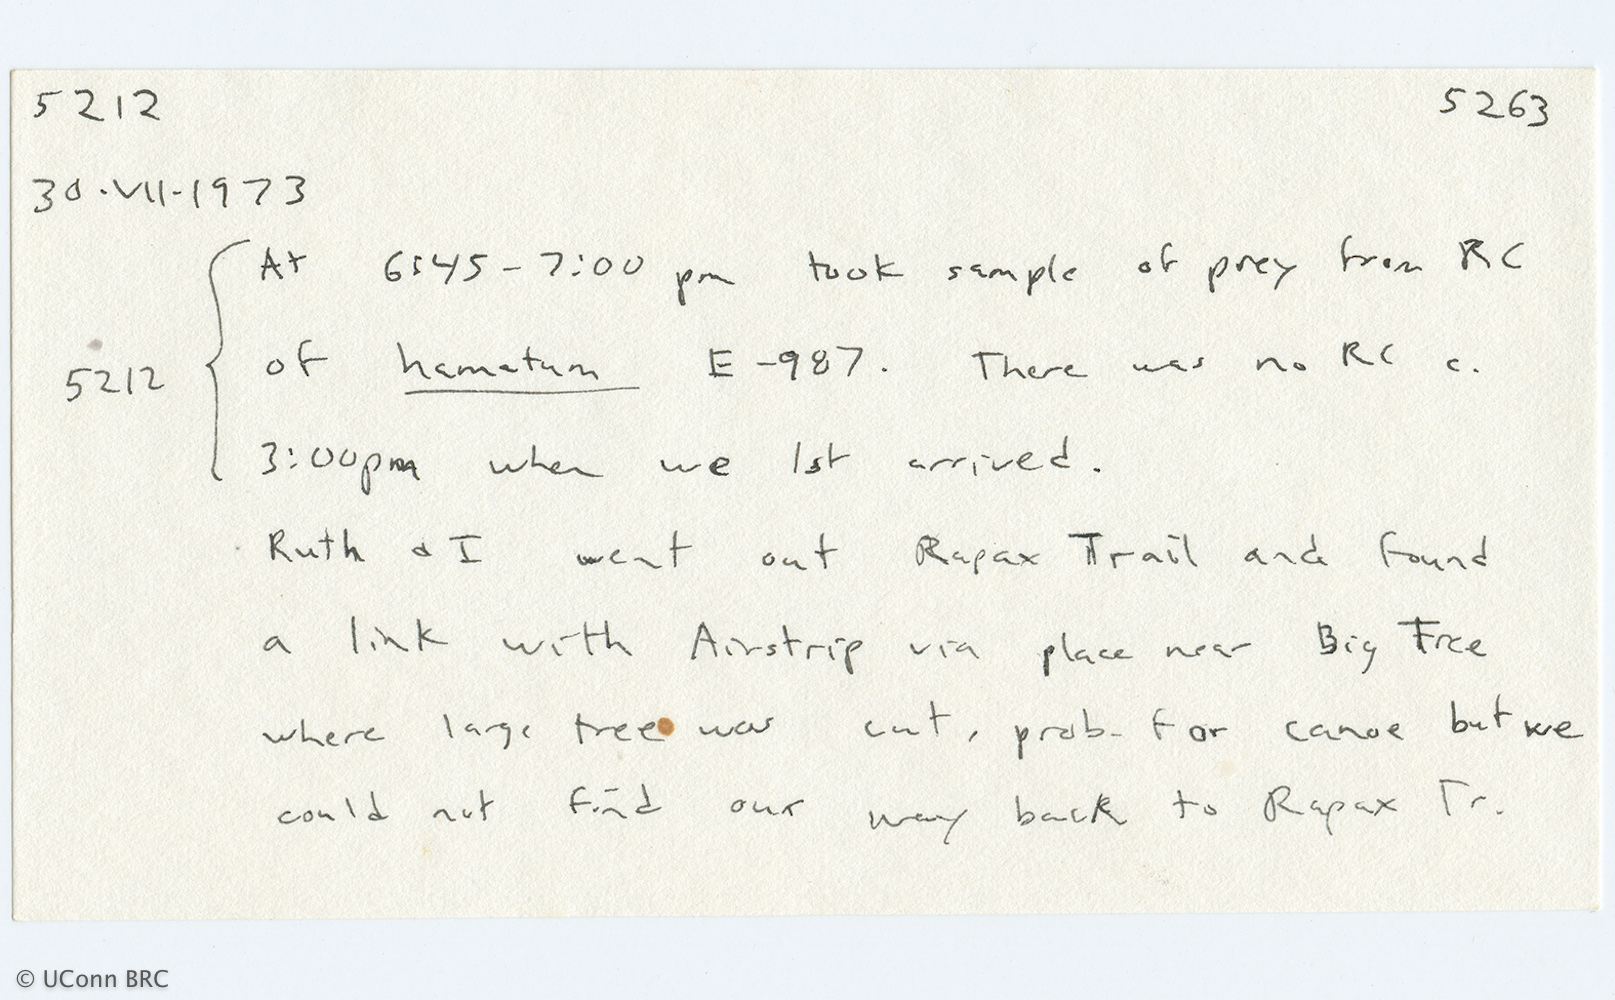 5212 5263
30·VII·1973
At 6:45-7:00 pm took sample of prey from RC
5212 of hamatum E-987. There was no RC c.
3:00pm when we 1st arrived.
Ruth & I went out Rapax Trail and found
a link with Airstrip via place near Big Tree
where large tree was cut, prob. for canoe but we
could not find our way back to Rapax Tr.
© UConn BRC